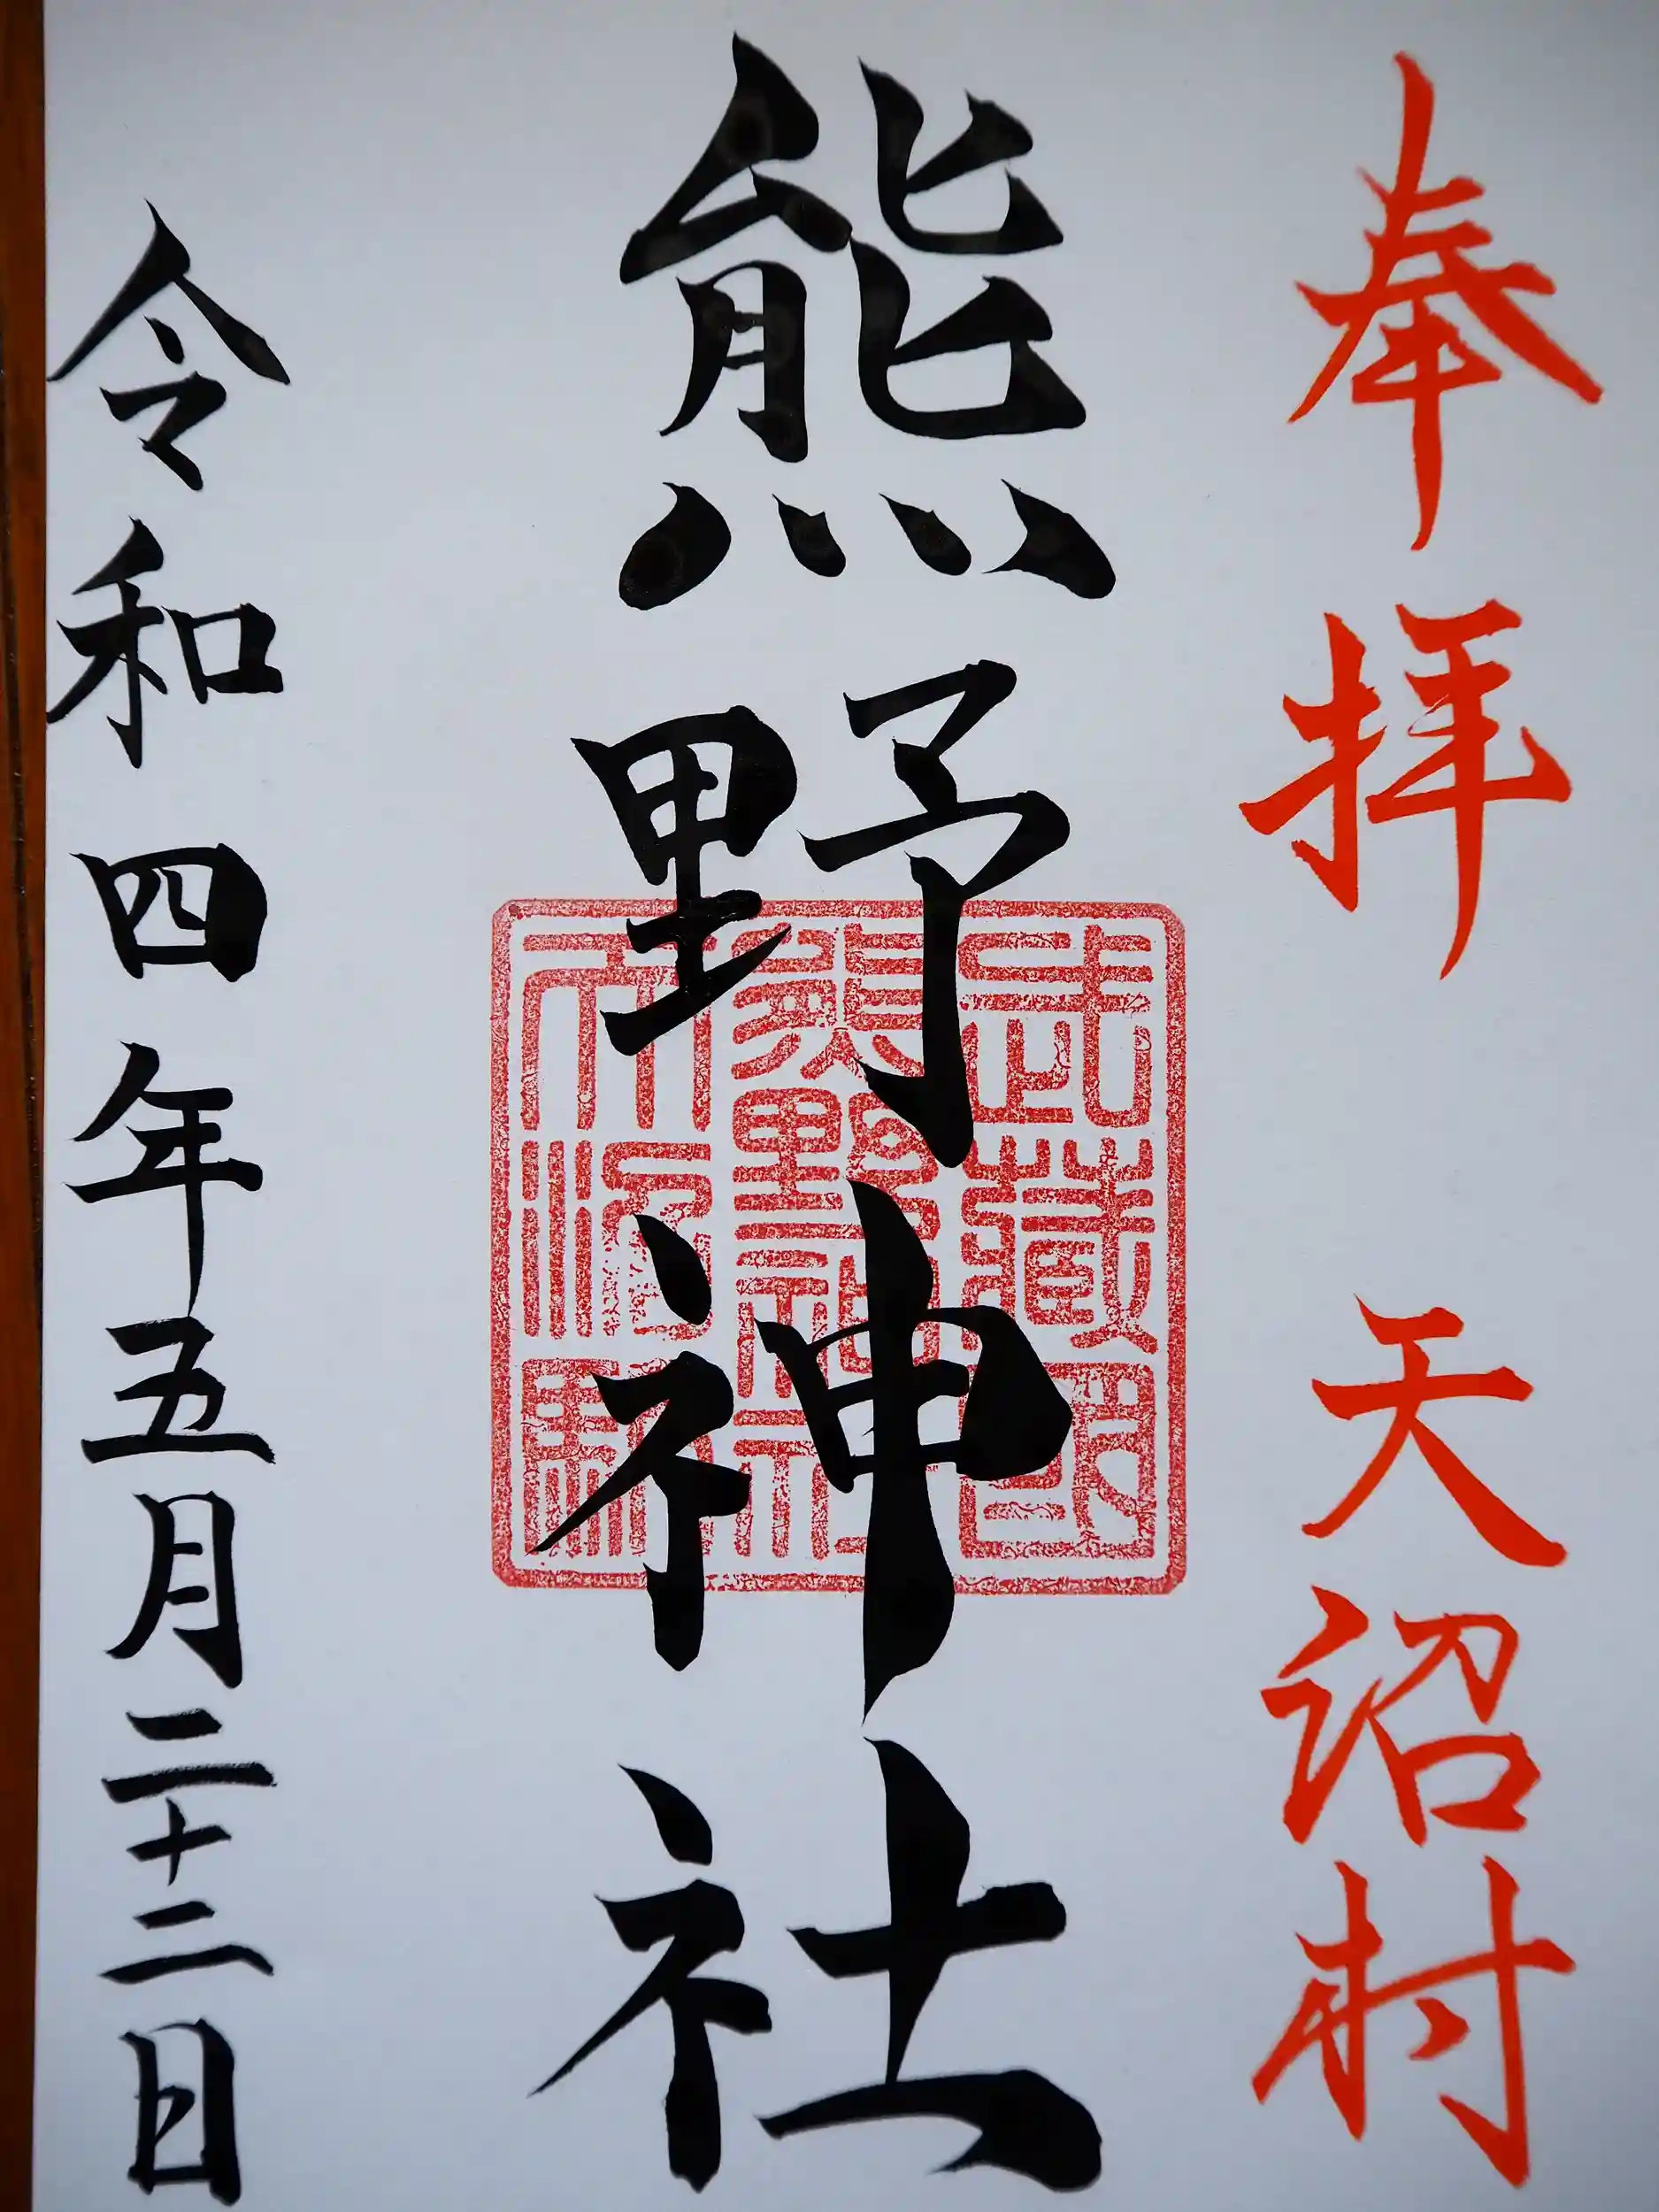 奉拝 天沼村
熊野神社
武蔵國
熊野神社
天沼
令和四年五月二十二日